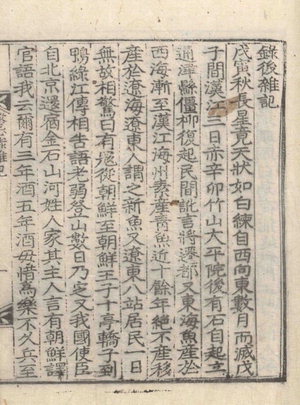 錄後雜記
戊寅秋長星竟天狀如白練自西向東數月而滅戊
子間漢江三日赤辛卯竹山大平院後有石自起立
通津縣僵柳復起民間訛言將遷都又東海魚産於
西海漸至漢江海州素産靑魚近十餘年絶不産移
産於遼海遼東人謂之新魚又遼東八站居民一日
無故相驚曰有寇從朝鮮至朝鮮王子十亭轎子到
鴨綠江傳相告語老弱登山數日乃定又我國使臣
自北京還宿金石山河姓人家其主人言有朝鮮譯
官語我云爾有三年酒五年酒毋惜爲樂不久兵至
雜記